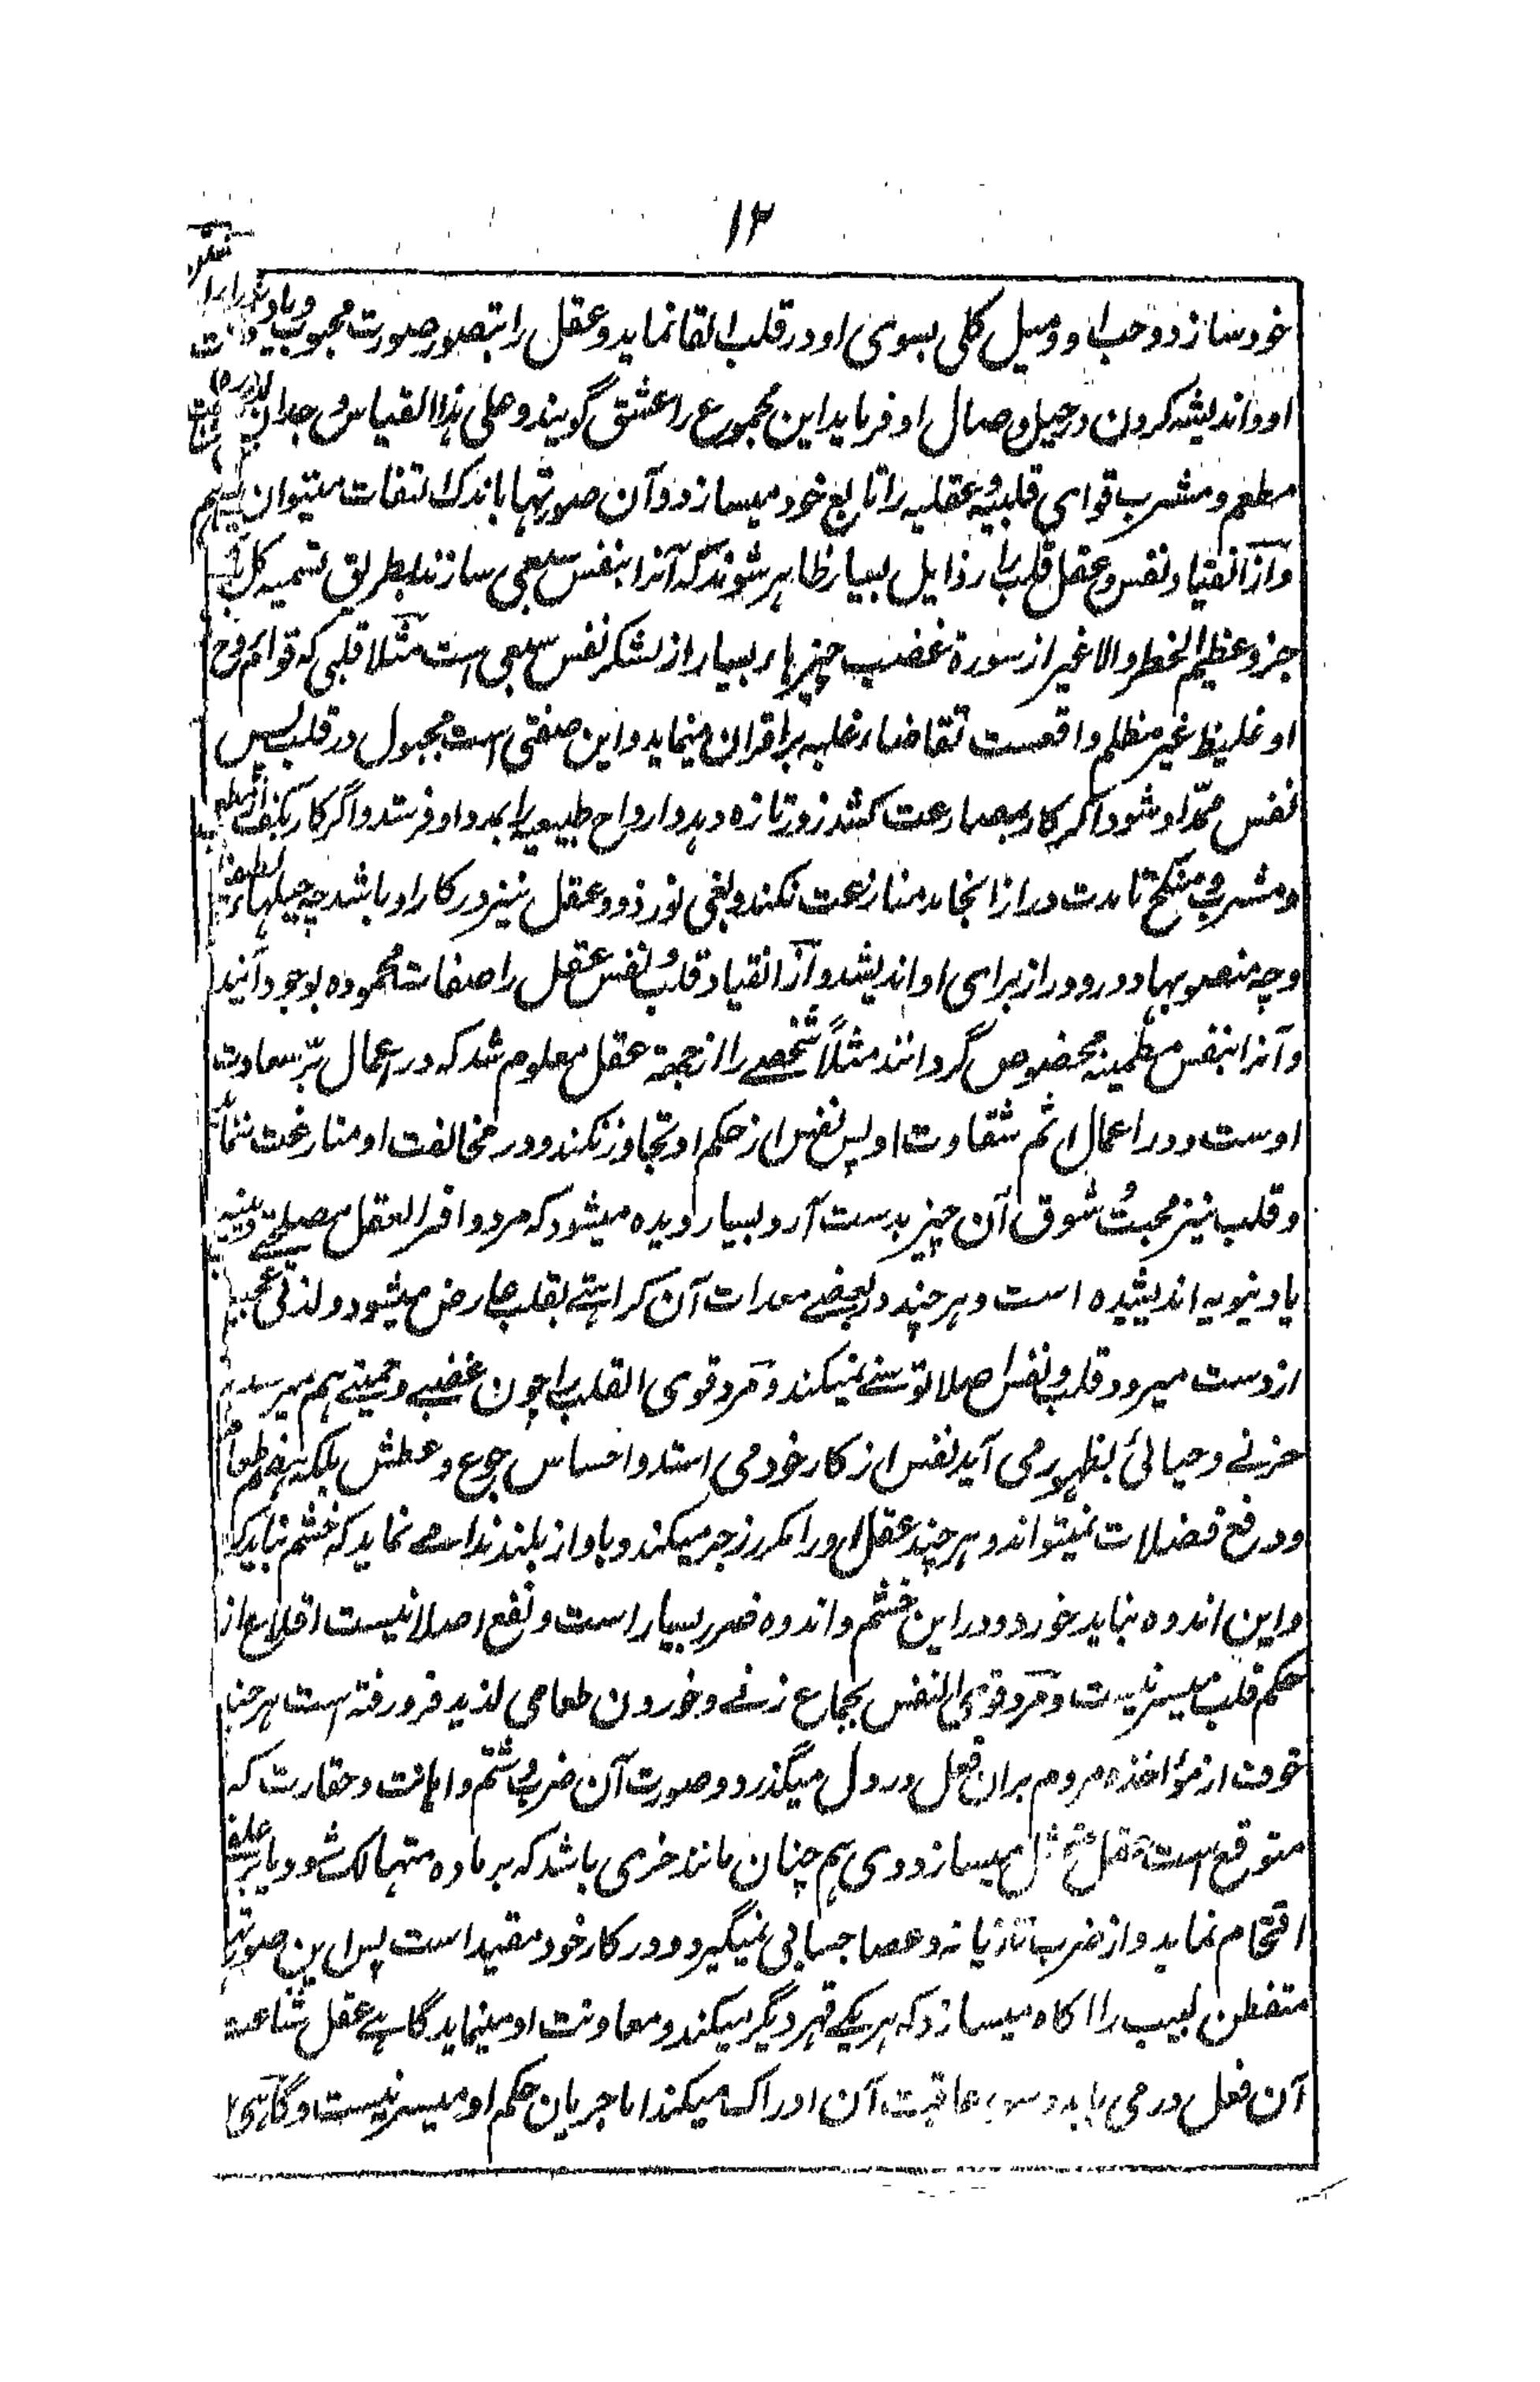 ۱۲
خود سازد و حب او و میل کلی بسوی او در قلب القا نماید و عقل را بتصور صورت محبوب و یاد
او و اندیشه کردن در حیل وصال او فرماید این مجموع را عشق گویند و علی هذا القیاس وجدان لذت
مطعم و مشرب قوای قلبیه و عقلیه را تابع خود میسازد و آن صورتها باندک التفات میتوان فهمید
و از انقیاد نفس و عقل قلب را رذایل بسیار ظاهر شوند که آنرا بنفس سبعی سازند بطریق تسمیه کل
جزو عظیم الخطر والا غیر از سورة غضب چیزهاء بسیار از لشکر نفس سبعی است مثلا قلبی که قوام روح
او غلیظ غیر مظلم واقعست تقاضاء غلبه بر اقران مینماید و این صفتی است مجبول در قلب پس
نفس ممد او شود اگر کار بمصارعت کشد زور تازه دهد و ارواح طبیعیه را بمدد او فرستد و اگر کار بکف از مطعم
و مشرب و منکح تا مدت دراز انجامد منازعت نکند و بغی نورزد و عقل نیز در کار او باشد چه حیلهاء لطیف
و چه منصوبها دور و دراز برای او اندیشد و از انقیاد قلب و نفس عقل را صفات محموده بوجود آیند
و آنرا بنفس مطمینه مخصوص گردانند مثلاً شخصے را از جهة عقل معلوم شد که در اعمال بِرّ سعادت
اوست و در اعمال اثم شقاوت او پس نفس از حکم او تجاوز نکند و در مخالفت او منازعت ننماید
و قلب نیز محبت و شوق آن چیز بدست آرد بسیار دیده میشود که مرد وافر العقل مصلحتے دینیه
یا دنیویه اندیشیده است و هر چند در بعضے معدات آن کراهتے بقلب عارض میشود و لذتی
از دست میرود قلب و نفس اصلا توسنے نمیکند و مرد قوی القلب را چون غضبے و حمیتے بهم میرسد
حزنے و حیائی بظهور می آید نفس از کار خود می استد و احساس جوع و عطش بلکه هضم طعام
و دفع فضلات نمیتواند و هر چند عقل او را مکرر زجر میکند و باواز بلند ندا مے نماید که خشم نباید کرد
و این اندوه نباید خورد و در این خشم و اندوه ضرر بسیار است و نفع اصلا نیست اقلاع از
حکم قلب میسر نیست و مرد قوی النفس بجماع زنے و خوردن طعامی لذیذ فرو رفته است هر چند
خوف از مؤاخذه مردم بران فعل در دل میگذرد و صورت آن ضرب و شتم و اهانت و حقارت که
متوقع است عقل متمثل میسازد وی هم چنان مانند خری باشد که بر ماده متهالک شود یا بر علف
اقتحام نماید و از ضرب تازیانه و عصا حسابی نمیگیرد و در کار خود مقید است پس این صورتها
متفطن لبیب را اکاه میسازد که هر یکے قهر دیگر میکند و معاونت او مینماید گاهے عقل شناعت
آن فعل در می یابد و سوء عاقبت آن ادراک میکند اما جریان حکم او میسر نیست و گاهی